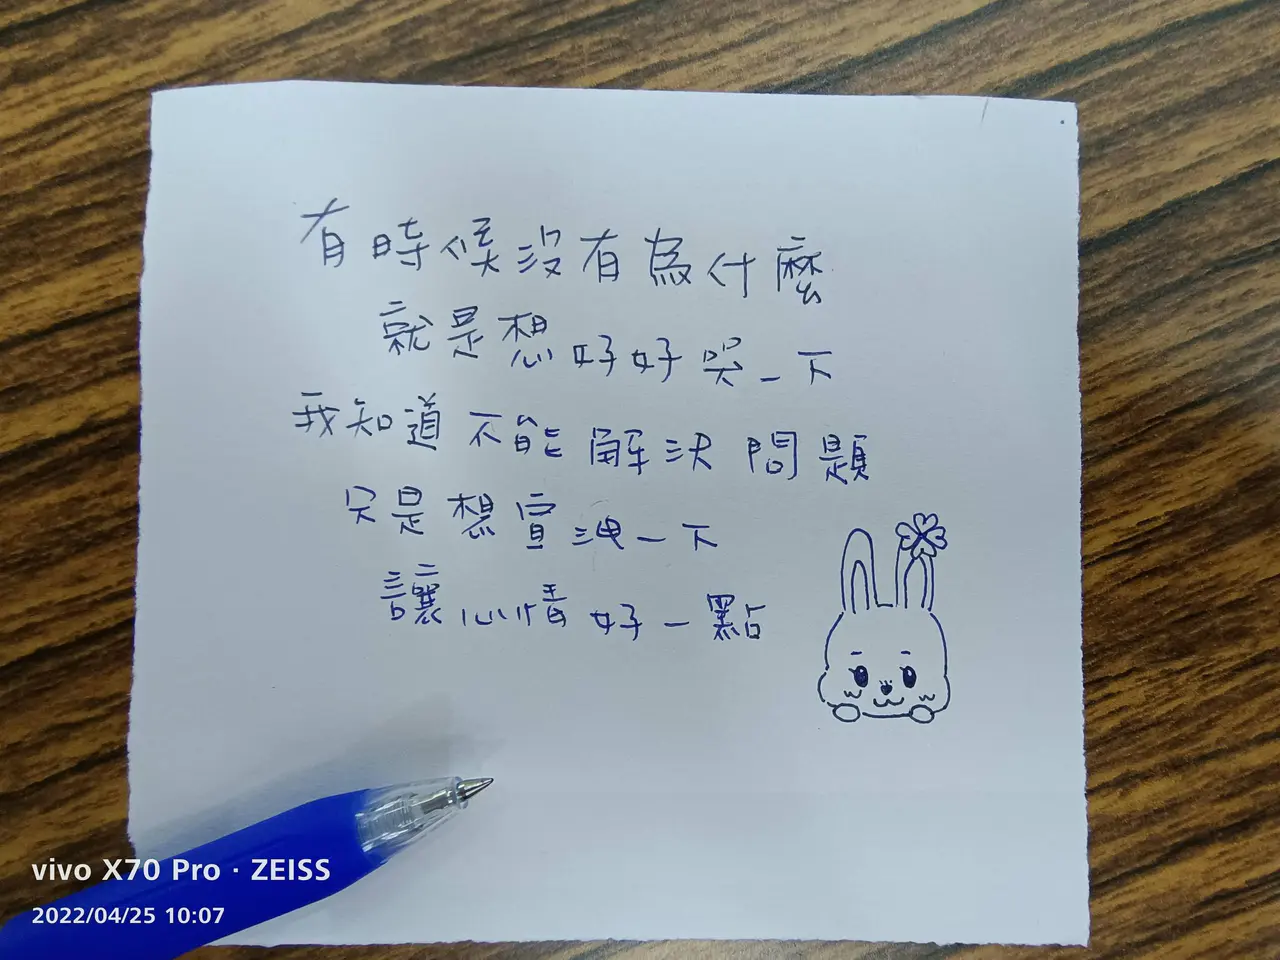 有時候沒有為什麼
就是想好好哭一下
我知道不能解決問題
只是想宣洩一下
讓心情好一點
vivo X70 Pro · ZEISS
2022/04/25 10:07